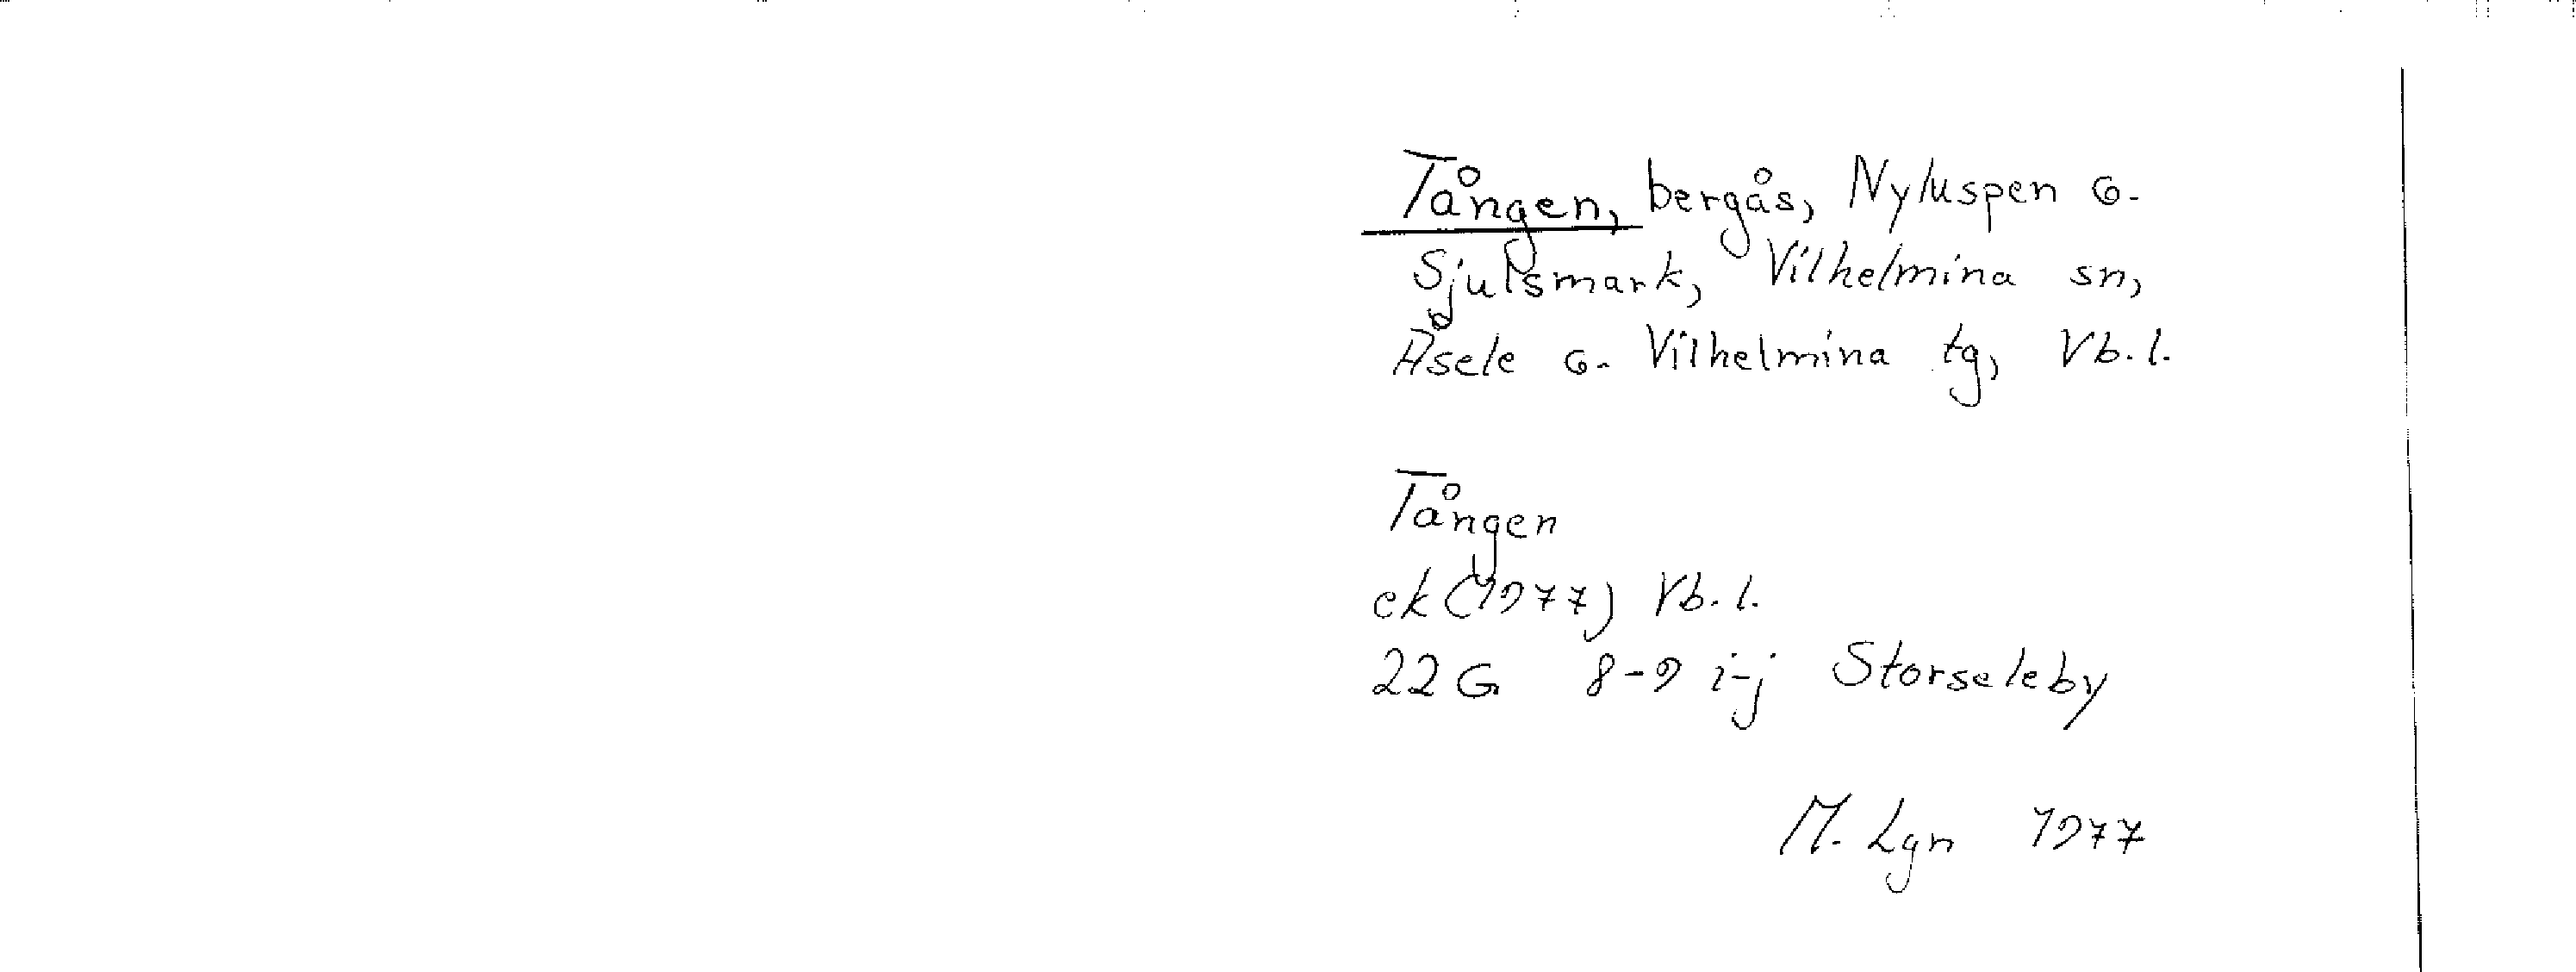 Tången, bergås, Nyluspen o.
Sjulsmark, Vilhelmina sn,
Åsele o. Vilhelmina tg, Vb.l.
Tången
ek (1977) Vb.l.
22 G 8-9 i-j Storseleby
M. Lgn 1977